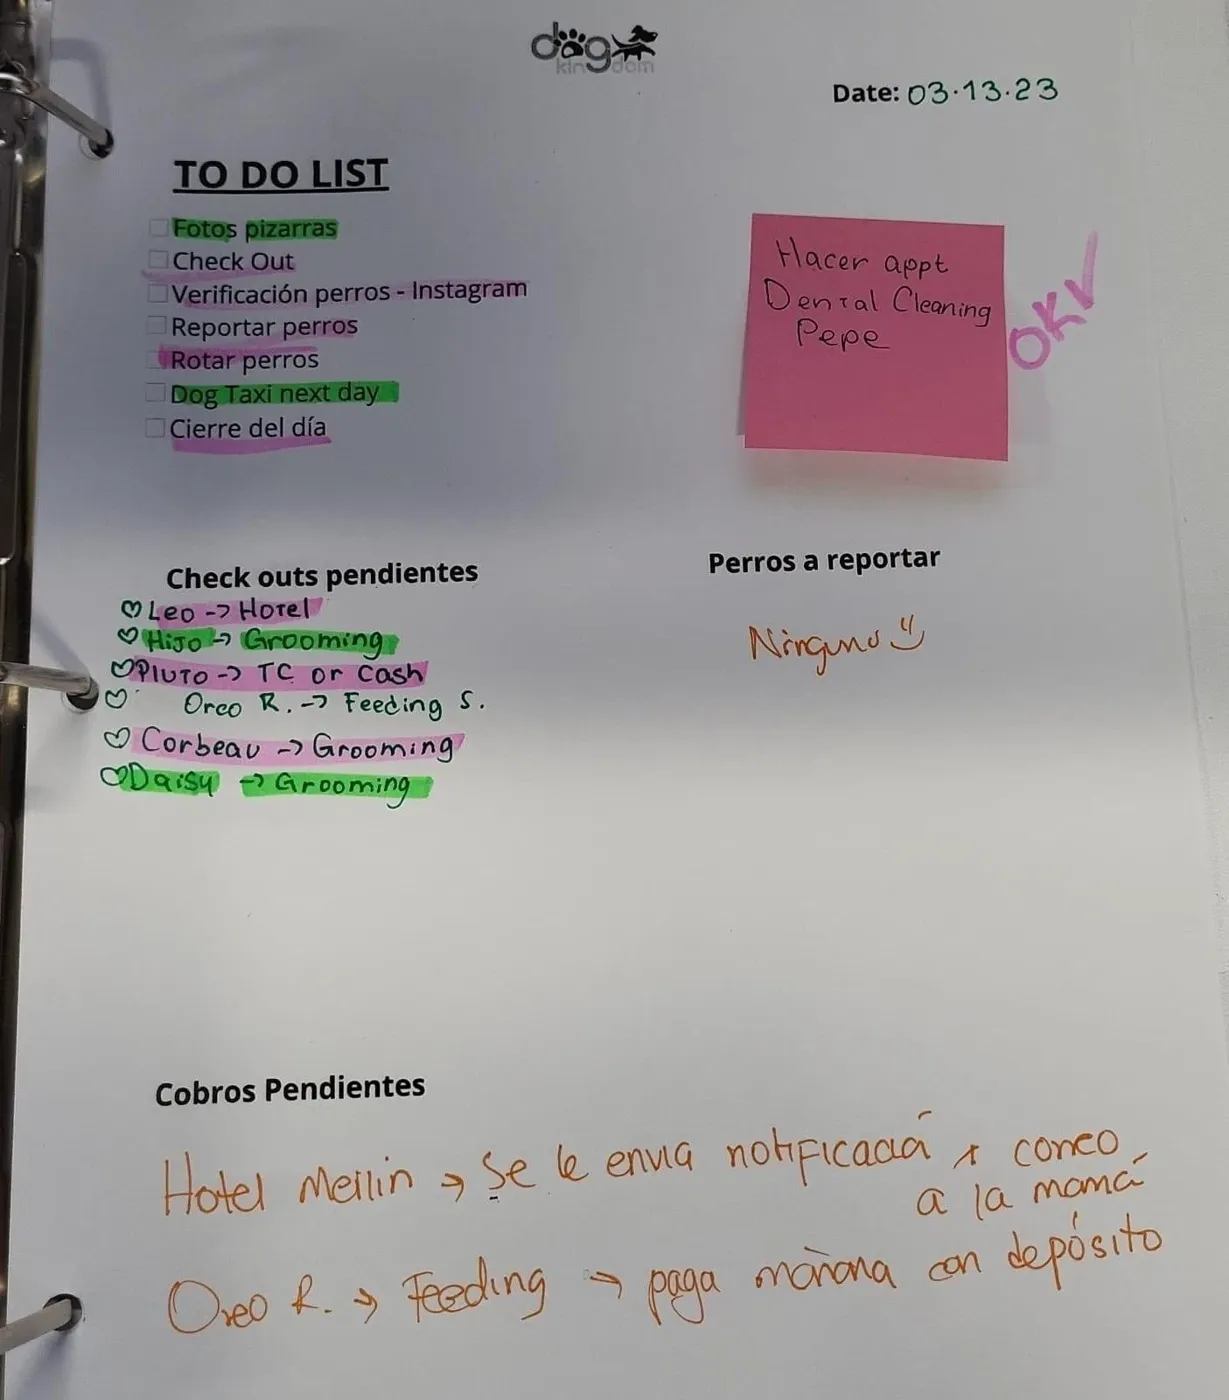 dog
kingdom
Date: 03·13·23
TO DO LIST
Fotos pizarras
Check Out
Verificación perros - Instagram
Reportar perros
Rotar perros
Dog Taxi next day
Cierre del día
Hacer appt
Dental Cleaning
Pepe
OK✓
Check outs pendientes
♡ Leo -> Hotel
♡ Hijo -> Grooming
♡ Pluto -> TC or Cash
♡ Oreo R. -> Feeding S.
♡ Corbeau -> Grooming
♡ Daisy -> Grooming
Perros a reportar
Ninguno
Cobros Pendientes
Hotel Merlin -> Se le envia notificación x correo
a la mamá
Oreo R. -> Feeding -> paga mañana con depósito